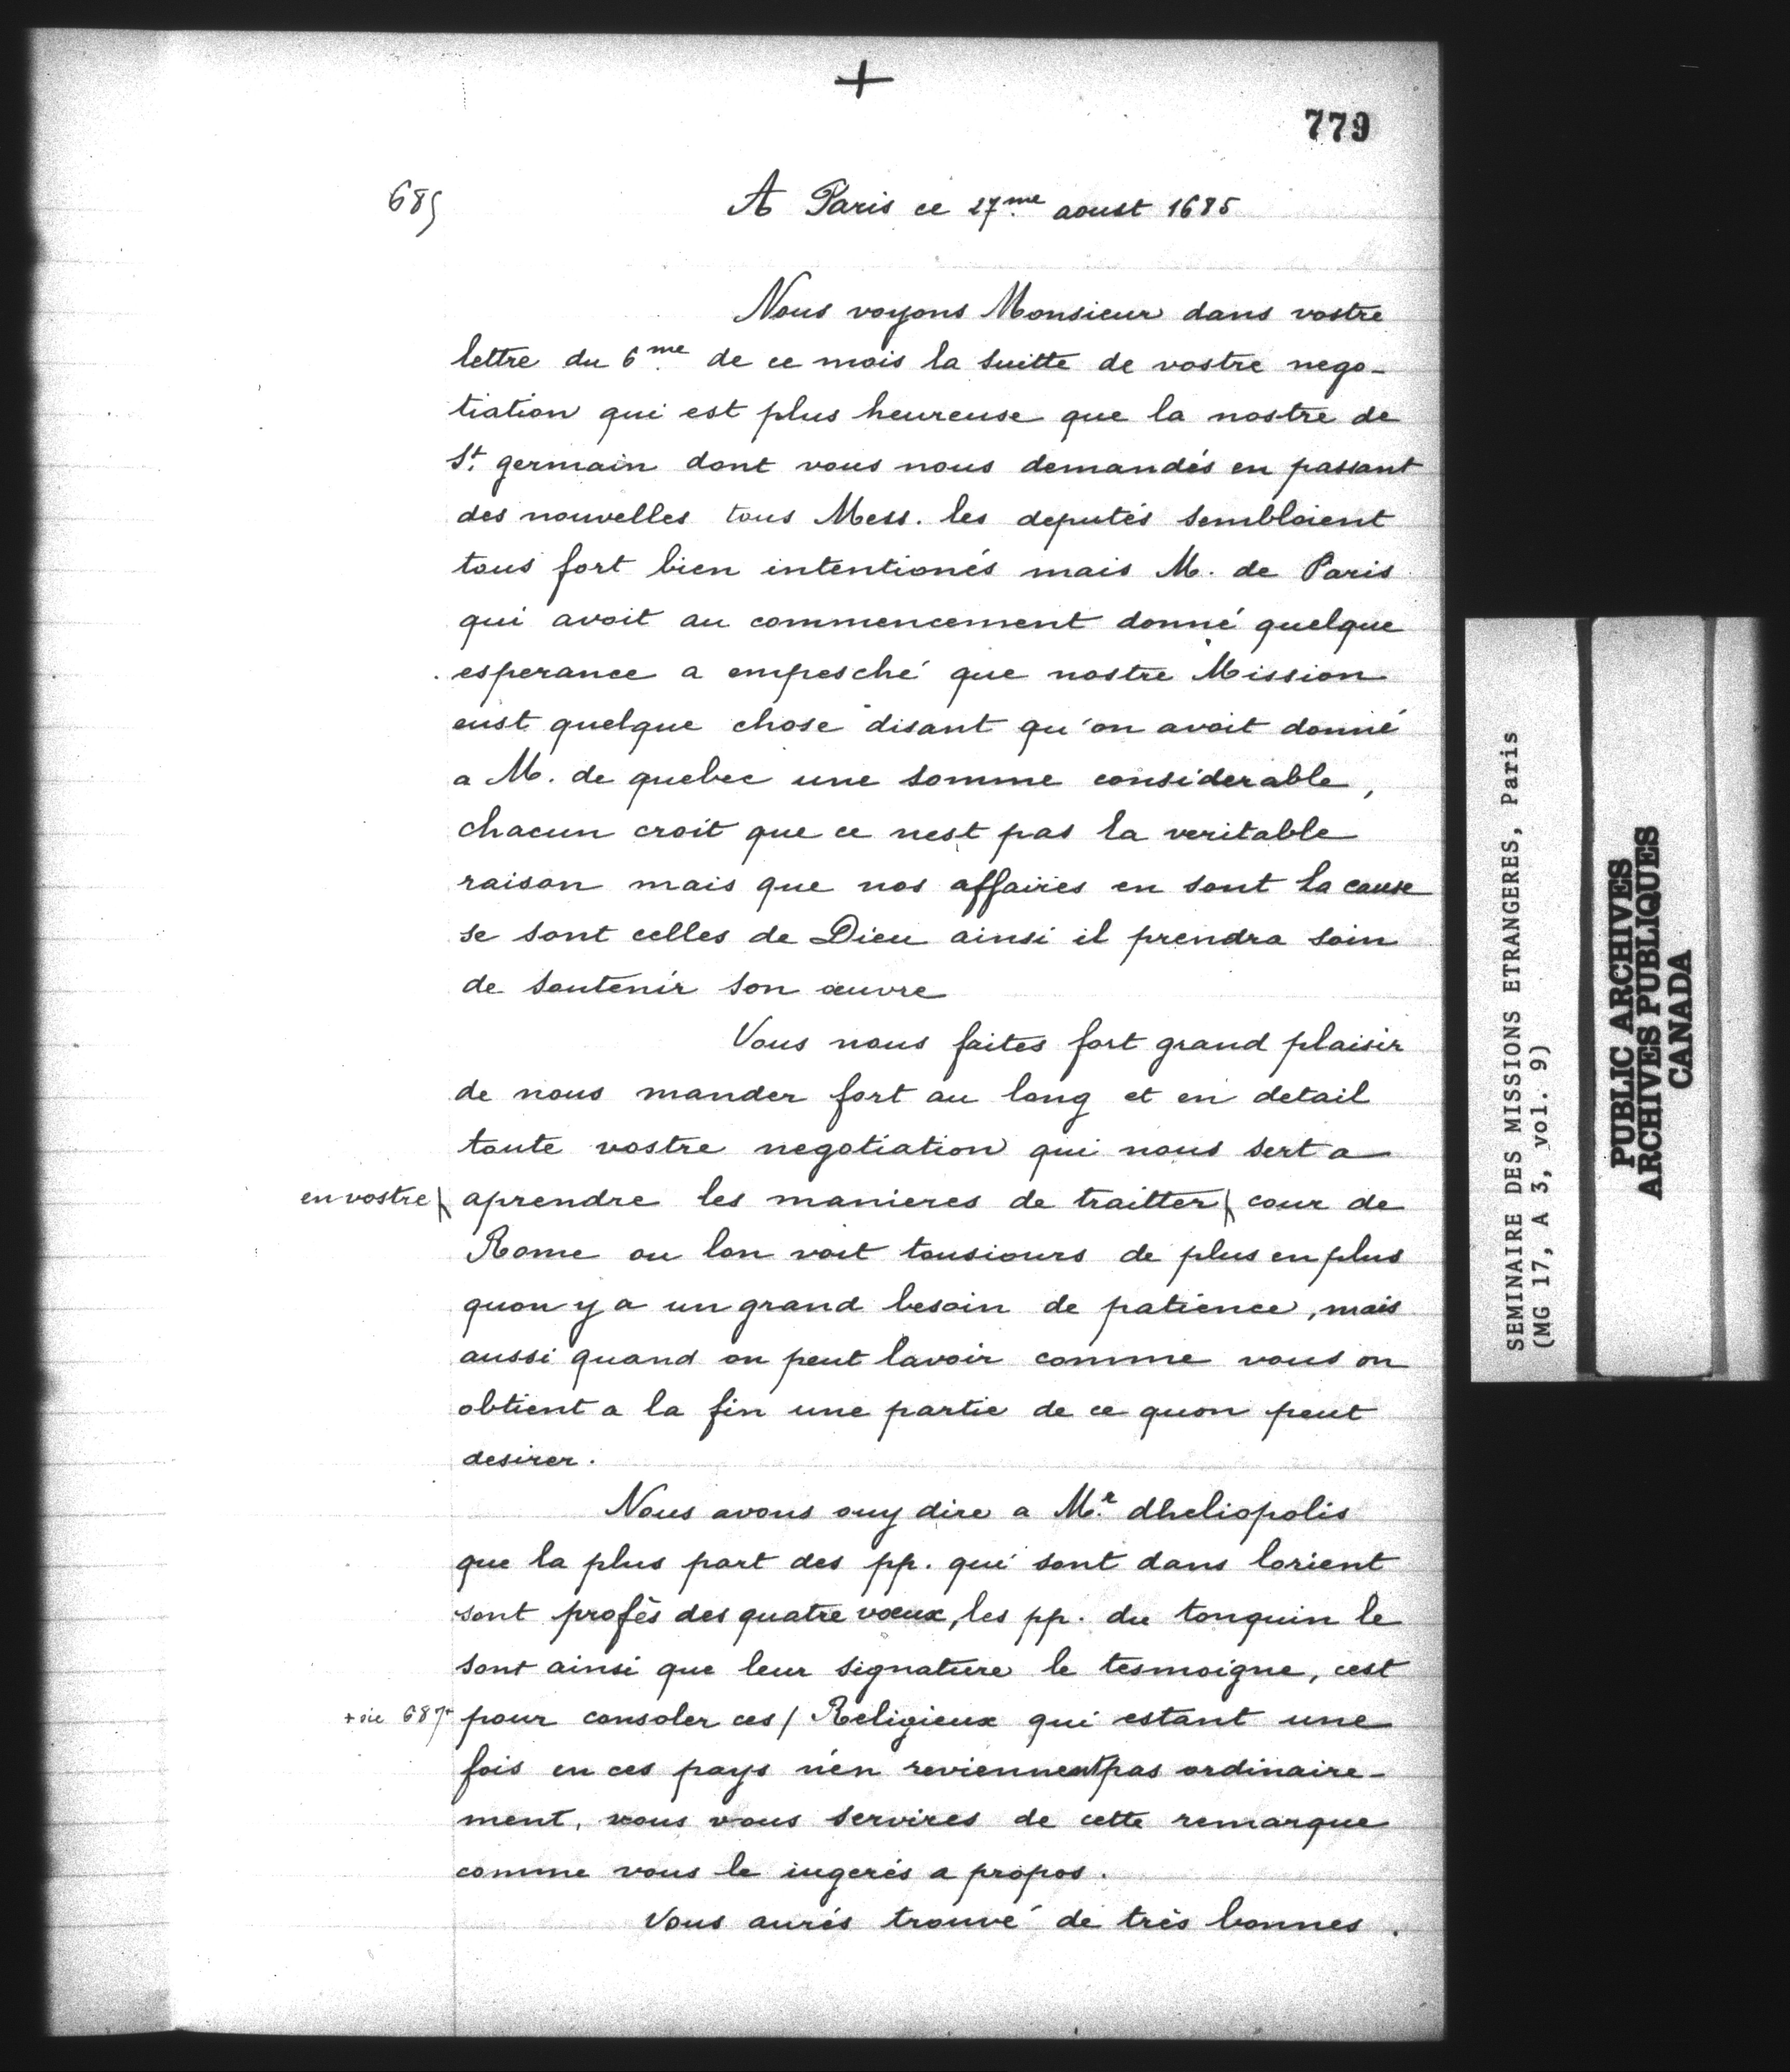 +
779
685
A Paris ce 27.me aoust 1685
Nous voyons Monsieur dans vostre
lettre du 6.me de ce mois la suitte de vostre nego-
tiation qui est plus heureuse que la nostre de
St. germain dont vous nous demandés en passant
des nouvelles tous Mess. les deputés sembloient
tous fort bien intentionés mais M. de Paris
qui avoit au commencement donné quelque
esperance a empesché que nostre Mission
eust quelque chose disant qu'on avoit donné
a M. de quebec une somme considerable,
chacun croit que ce nest pas la veritable
raison mais que nos affaires en sont la cause
se sont celles de Dieu ainsi il prendra soin
de soutenir son œuvre
Vous nous faites fort grand plaisir
de nous mander fort au long et en detail
toute vostre negotiation qui nous sert a
en vostre \ aprendre les manieres de traitter \ cour de
Rome ou lon voit tousiours de plus en plus
quon y a un grand besoin de patience, mais
aussi quand on peut lavoir comme vous on
obtient a la fin une partie de ce quon peut
desirer.
Nous avons ouy dire a Mr. dheliopolis
que la plus part des pp. qui sont dans lorient
sont profès des quatre vœux, les pp. du tonquin le
sont ainsi que leur signature le tesmoigne, cest
+ sic 687+ pour consoler ces / Religieux qui estant une
fois en ces pays n'en reviennent pas ordinaire-
ment, vous vous servires de cette remarque
comme vous le iugerés a propos.
Vous aurés trouvé de très bonnes
SEMINAIRE DES MISSIONS ETRANGERES, Paris
(MG 17, A 3, vol. 9)
PUBLIC ARCHIVES
ARCHIVES PUBLIQUES
CANADA